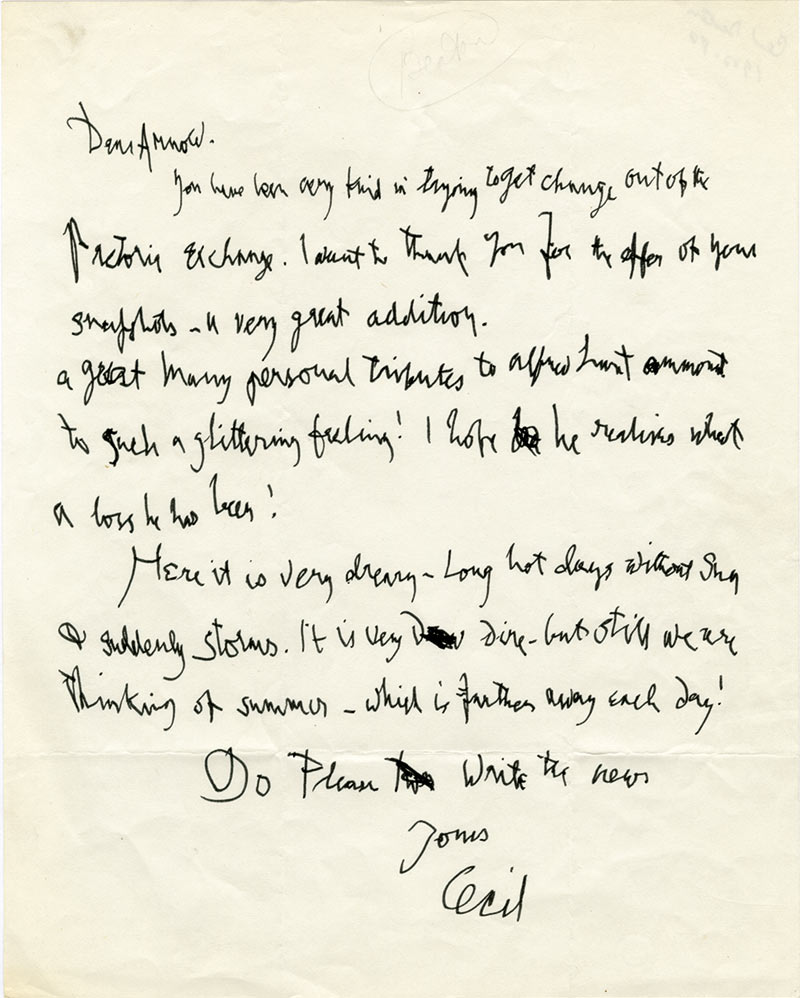 Beaton
Dear Arnold.
You have been very kind in trying to get change out of the
Pretoria Exchange. I want to thank you for the offer of your
snapshots - a very great addition.
a great many personal tributes to alfred Lunt ammount
to such a glittering feeling! I hope he realises what
a loss he has been!
Here it is very dreary - Long hot days without Sun
& suddenly storms. It is very dire - but still we are
Thinking of summer - which is further away each day!
Do Please Write the news
Yours
Cecil